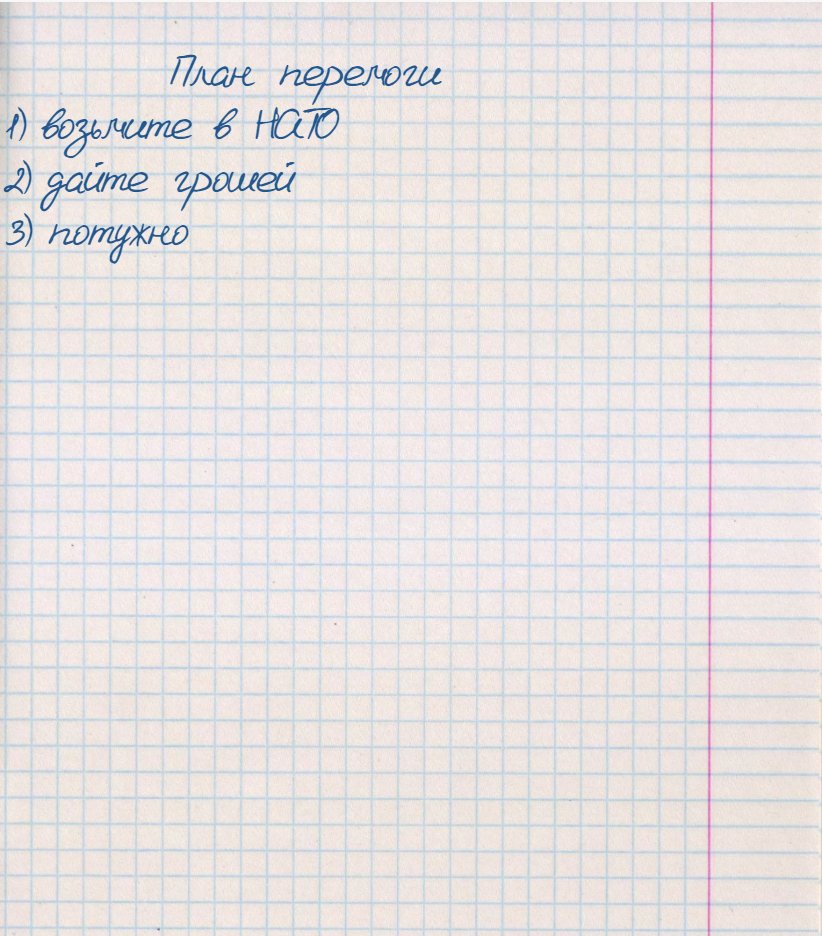 План перемоги
1) возьмите в НАТО
2) дайте грошей
3) потужно